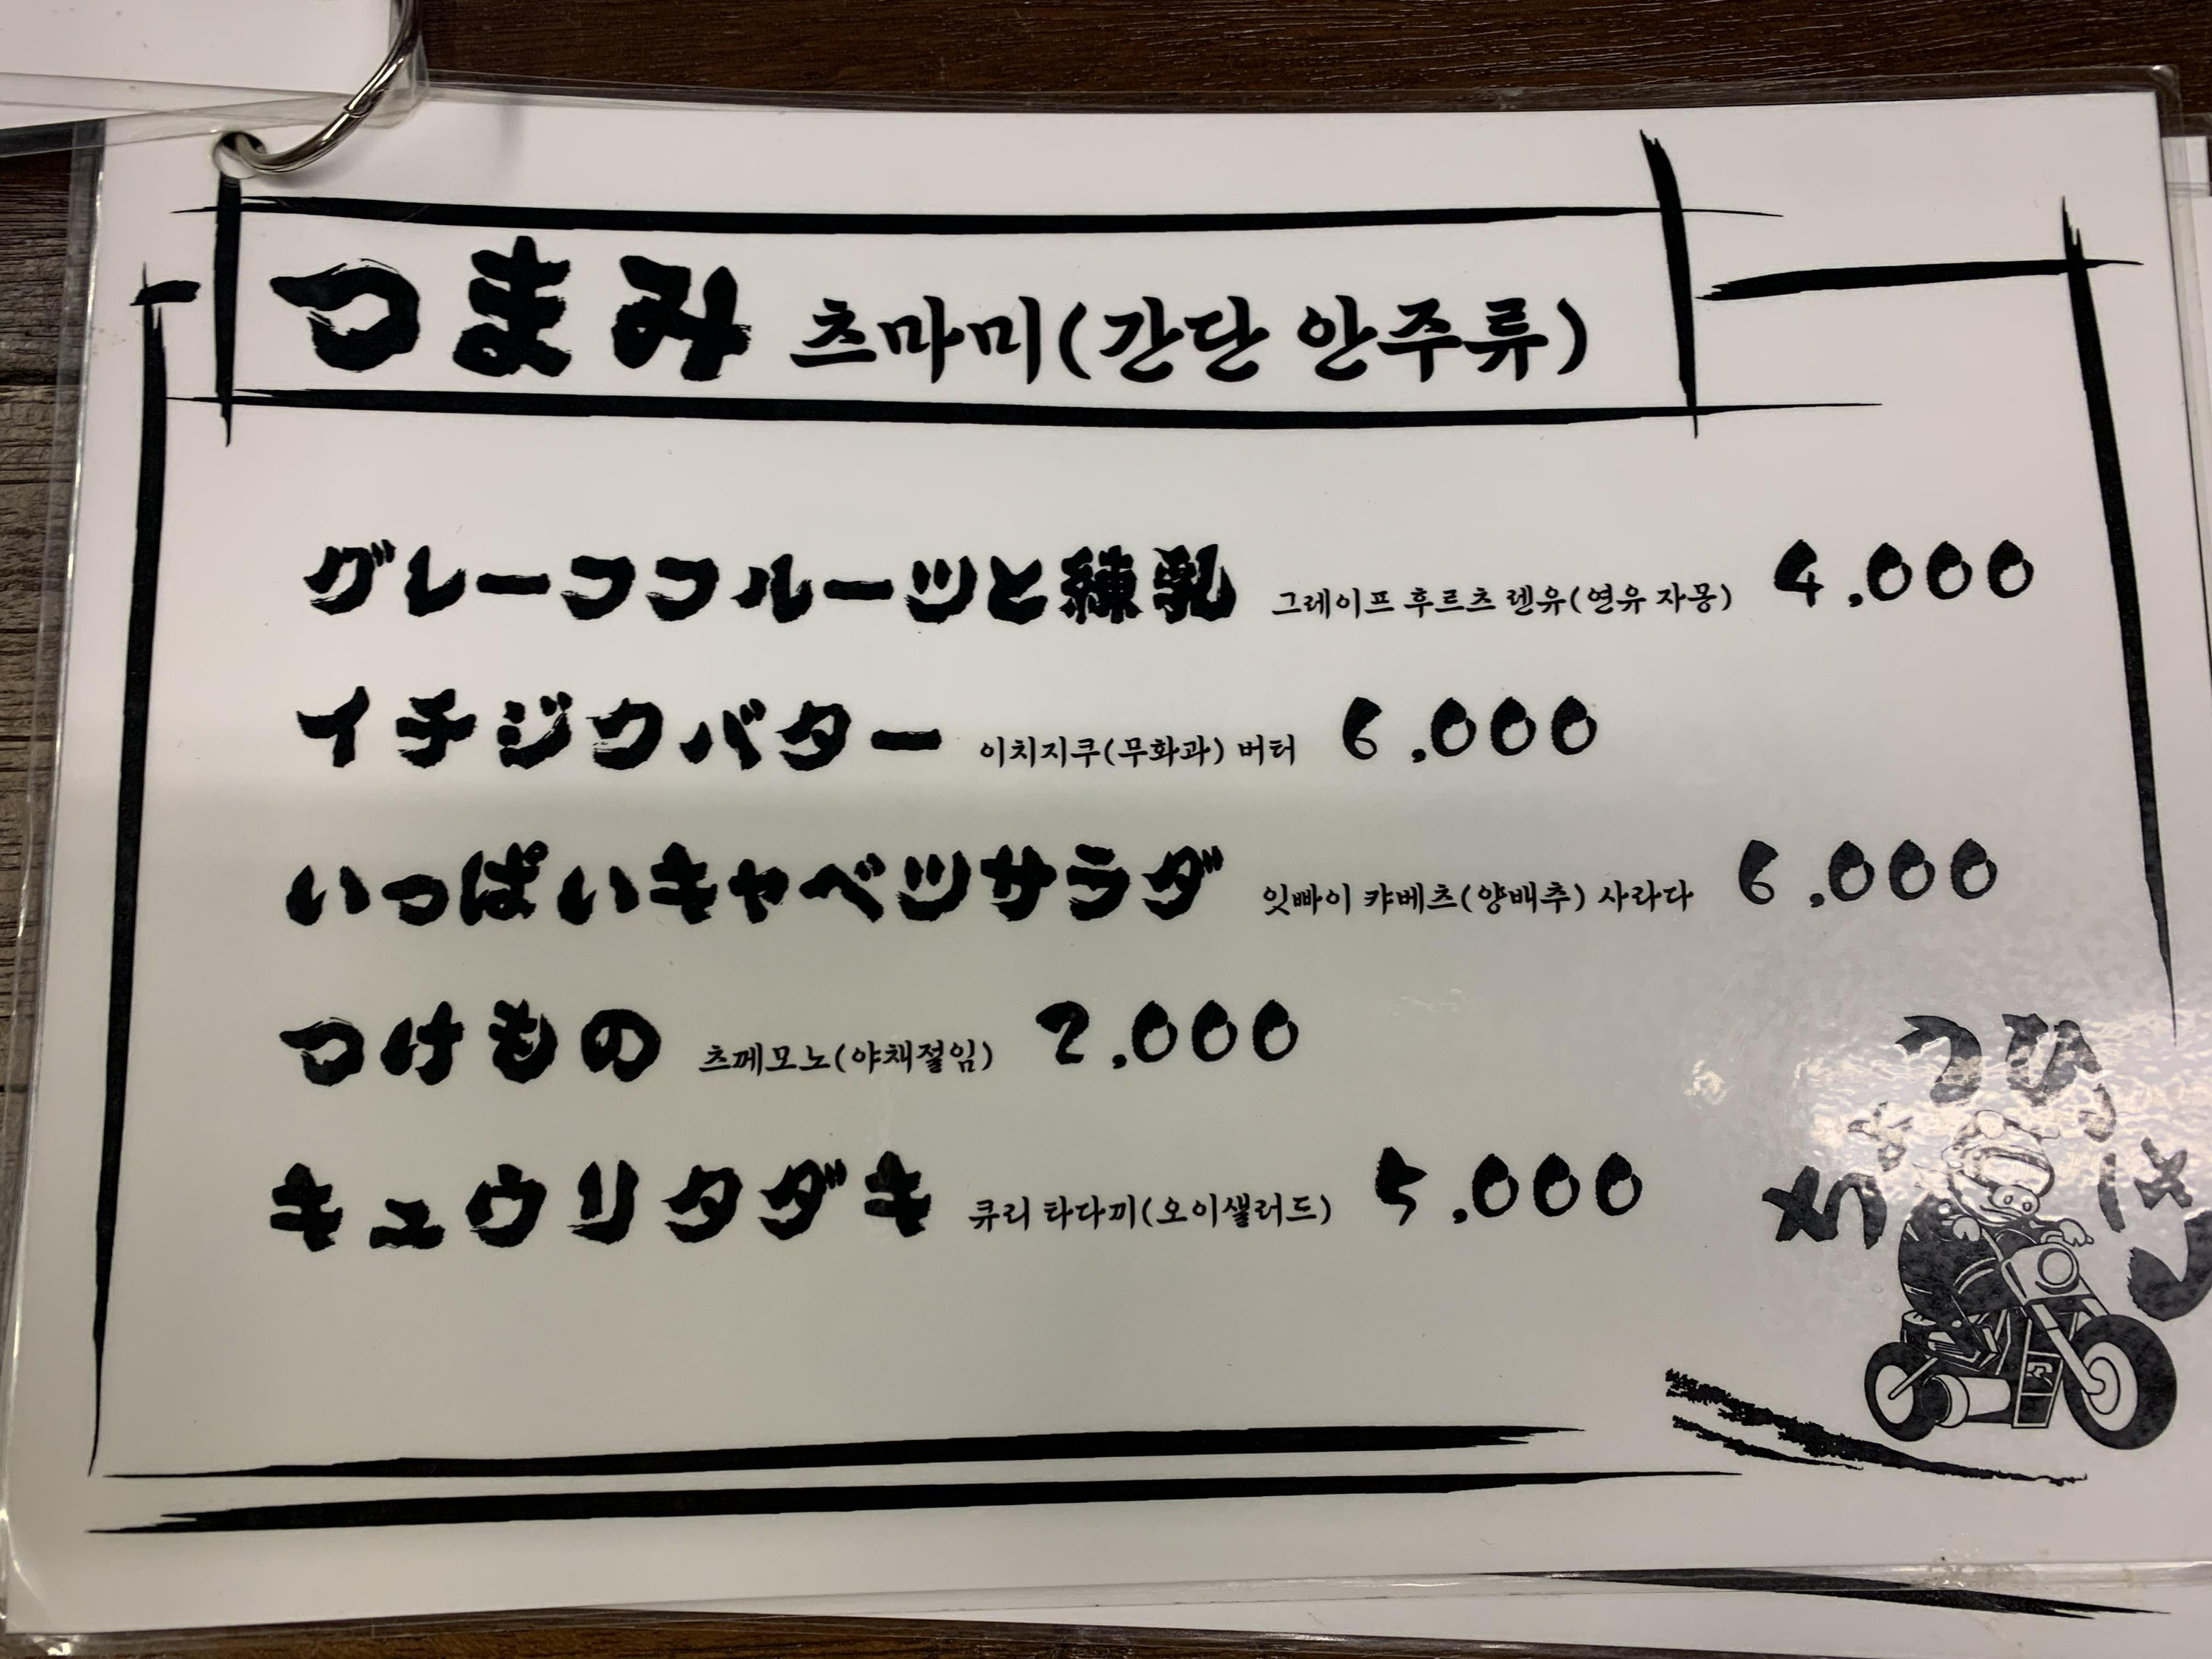 つまみ 츠마미(간단 안주류)
グレーフフルーツと練乳 그레이프 후르츠 렌유(연유 자몽) 4,000
イチジクバター 이치지쿠(무화과) 버터 6,000
いっぱいキャベツサラダ 잇빠이 캬베츠(양배추) 사라다 6,000
つけもの 츠께모노(야채절임) 2,000
キュウリタダキ 큐리 타다끼(오이샐러드) 5,000